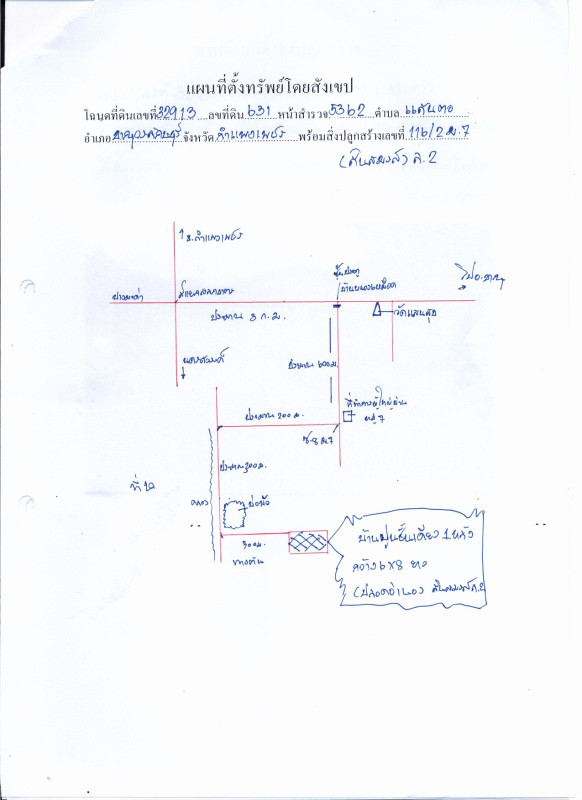 แผนที่ตั้งทรัพย์โดยสังเขป
โฉนดที่ดินเลขที่ 32913 เลขที่ดิน 631 หน้าสำรวจ 5362 ตำบล แสนตอ
อำเภอ ขาณุวรลักษบุรี จังหวัด กำแพงเพชร พร้อมสิ่งปลูกสร้างเลขที่ 116/2 ม.7
(สินสมรส) ล.2
↑ จ.กำแพงเพชร
ซุ้มประตู
บ้านหนองเหมือด
ไป อ.ขาณุ
สี่แยกสลกบาตร
วัดแสนสุข
ประมาณ 3 ก.ม.
นครสวรรค์
ประมาณ 600 ม.
ที่ทำการผู้ใหญ่บ้าน
หมู่ 7
ประมาณ 200 ม.
ซ.8 ม.7
ประมาณ 300 ม.
คลอง
บ่อบัว
300 ม.
ทางตัน
บ้านปูนชั้นเดียว 1 หลัง
กว้าง 6x8
(ปลอดจำนอง) สินสมรส ล.2